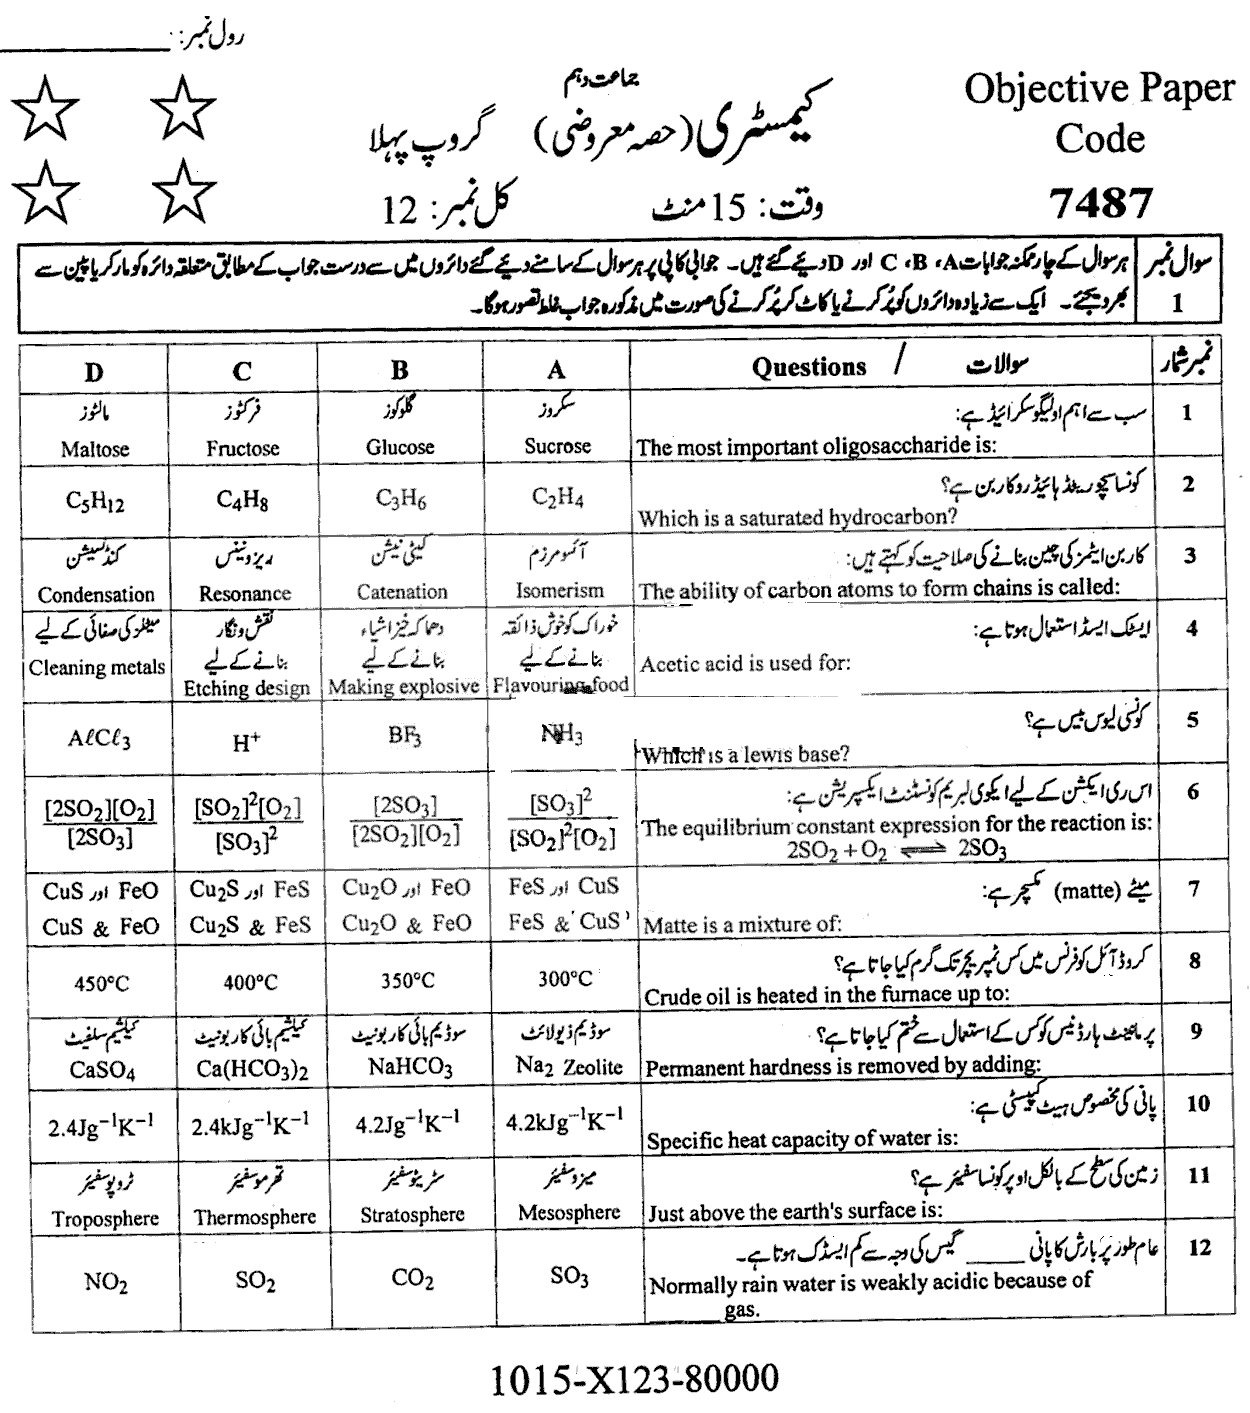 رول نمبر: ____________
جماعت دہم
Objective Paper
Code
7487
کیمسٹری (حصہ معروضی) گروپ پہلا
وقت: 15 منٹ کل نمبر: 12
سوال نمبر 1
ہر سوال کے چار ممکنہ جوابات A، B، C اور D دیئے گئے ہیں۔ جوابی کاپی پر ہر سوال کے سامنے دیئے گئے دائروں میں سے درست جواب کے مطابق متعلقہ دائرہ کو مارکر یا پین سے
بھر دیجئے۔ ایک سے زیادہ دائروں کو پُر کرنے یا کاٹ کر پُر کرنے کی صورت میں مذکورہ جواب غلط تصور ہوگا۔
نمبر شمار سوالات / Questions A B C D
1 سب سے اہم اولیگوسکرائیڈ ہے: سکروز گلوکوز فرکٹوز مالٹوز
The most important oligosaccharide is: Sucrose Glucose Fructose Maltose
2 کونسا سچوریٹڈ ہائیڈروکاربن ہے؟
Which is a saturated hydrocarbon? C₂H₄ C₃H₆ C₄H₈ C₅H₁₂
3 کاربن ایٹمز کی چین بنانے کی صلاحیت کو کہتے ہیں: آئسومرزم کیٹی نیشن ریزونینس کنڈنسیشن
The ability of carbon atoms to form chains is called: Isomerism Catenation Resonance Condensation
4 ایسٹک ایسڈ استعمال ہوتا ہے: خوراک کو خوش ذائقہ بنانے کے لیے دھماکہ خیز اشیاء بنانے کے لیے نقش و نگار بنانے کے لیے میٹلز کی صفائی کے لیے
Acetic acid is used for: Flavouring food Making explosive Etching design Cleaning metals
5 کونسی لیوس بیس ہے؟
Which is a lewis base? NH₃ BF₃ H⁺ AℓCℓ₃
6 اس ری ایکشن کے لیے ایکوی لبریم کونسٹنٹ ایکسپریشن ہے:
The equilibrium constant expression for the reaction is:
2SO₂ + O₂ ⇌ 2SO₃
[SO₃]²/[SO₂]²[O₂] [2SO₃]/[2SO₂][O₂] [SO₂]²[O₂]/[SO₃]² [2SO₂][O₂]/[2SO₃]
7 میٹے (matte) مکسچر ہے: FeS اور CuS Cu₂O اور FeO Cu₂S اور FeS CuS اور FeO
Matte is a mixture of: FeS & CuS Cu₂O & FeO Cu₂S & FeS CuS & FeO
8 کروڈ آئل کو فرنس میں کس ٹمپریچر تک گرم کیا جاتا ہے؟
Crude oil is heated in the furnace up to: 300°C 350°C 400°C 450°C
9 پرمانینٹ ہارڈنیس کو کس کے استعمال سے ختم کیا جاتا ہے؟ سوڈیم زیولائٹ سوڈیم بائی کاربونیٹ کیلشیم بائی کاربونیٹ کیلشیم سلفیٹ
Permanent hardness is removed by adding: Na₂ Zeolite NaHCO₃ Ca(HCO₃)₂ CaSO₄
10 پانی کی مخصوص ہیٹ کپیسٹی ہے:
Specific heat capacity of water is: 4.2kJg⁻¹K⁻¹ 4.2Jg⁻¹K⁻¹ 2.4kJg⁻¹K⁻¹ 2.4Jg⁻¹K⁻¹
11 زمین کی سطح کے بالکل اوپر کونسا سفیئر ہے؟ میزوسفیئر سٹریٹوسفیئر تھرموسفیئر ٹروپوسفیئر
Just above the earth's surface is: Mesosphere Stratosphere Thermosphere Troposphere
12 عام طور پر بارش کا پانی _____ گیس کی وجہ سے کم ایسڈک ہوتا ہے۔
Normally rain water is weakly acidic because of
______ gas. SO₃ CO₂ SO₂ NO₂
1015-X123-80000